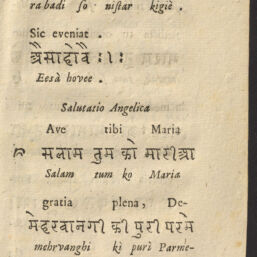 rabadi so nistar kigiè .
Sic eveniat .
ऐसाहोवै :।:
Eesà hovee .
Salutatio Angelica
Ave tibi Maria
सलाम तुम को मारीआ
Salam tum ko Maria
gratia plena, De-
मेहरवानगी की पुरी परमे
mehrvanghi ki purì Parme-